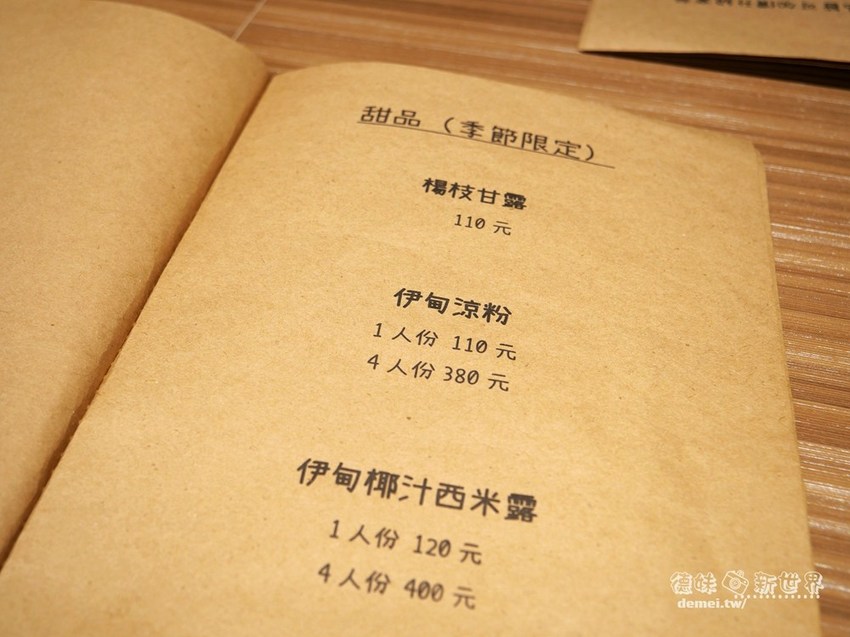 甜品（季節限定）
楊枝甘露
110元
伊甸涼粉
1人份 110元
4人份 380元
伊甸椰汁西米露
1人份 120元
4人份 400元
德味新世界
demei.tw/